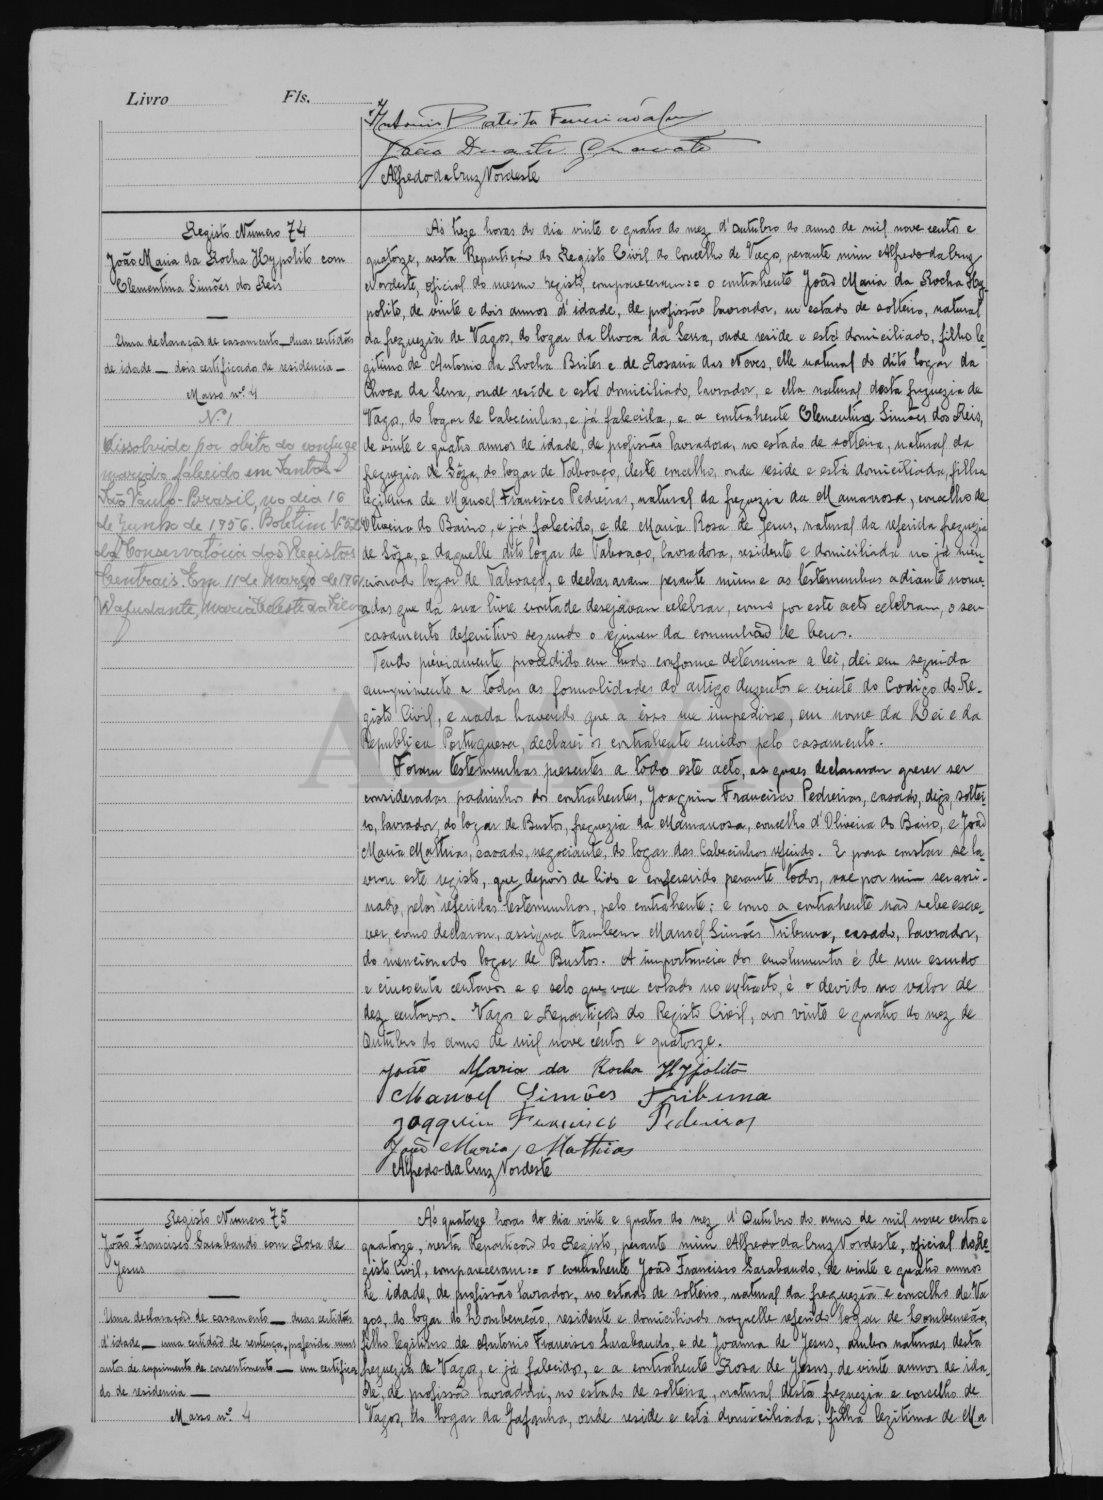 Livro Fls.
Antonio Batista
João Duarte
Alfredo da Cruz Nordeste
Registo Numero 74
João Maria da Rocha Hypolito com
Clementina Simões dos Reis
Uma declaração de casamento — duas certidões
de idade — dois certificado de residencia —
Masso nº 4
Nº 1
Dissolvido por obito do conjuge
marido falecido em Santos -
São Paulo - Brasil, no dia 16
de Junho de 1956. Boletim
da Conservatória dos Registos
Centrais. Em 11 de Março de 196
O ajudante, Maria Celeste da Silva
Ás treze horas do dia vinte e quatro do mez d'Outubro do anno de mil nove centos e
quatorze, nesta Repartição do Registo Civil do Concelho de Vagos, perante mim Alfredo da Cruz
Nordeste, oficial do mesmo registo, compareceram:= o contrahente João Maria da Rocha Hy-
polito, de vinte e dois annos d'idade, de profissão lavrador, no estado de solteiro, natural
da freguezia de Vagos, do logar da Choca da Serra, onde reside e está domiciliado, filho le-
gitimo de Antonio da Rocha Brites e de Rosaria das Neves, elle natural do dito logar da
Choca da Serra, onde reside e está domiciliado, lavrador, e ella natural desta freguezia de
Vagos, do logar de Cabecinhas, e já falecida, e a contrahente Clementina Simões dos Reis,
de vinte e quatro annos de idade, de profissão lavradora, no estado de solteira, natural da
freguezia de Sôza, do logar de Taboaço, deste concelho, onde reside e está domiciliada, filha
legitima de Manoel Francisco Pedreiras, natural da freguezia da Mamarrosa, concelho de
Oliveira do Bairro, e já falecido, e de Maria Rosa de Jesus, natural da referida freguezia
de Sôza, e daquelle dito logar de Taboaço, lavradora, residente e domiciliada no já men-
cionado logar de Taboaço, e declararam perante mim e as testemunhas adiante nome-
adas que da sua livre vontade desejavam celebrar, como por este acto celebram, o seu
casamento definitivo segundo o regimen da communhão de bens.
Tendo préviamente procedido em tudo conforme determina a lei, dei em seguida
cumprimento a todas as formalidades do artigo duzentos e vinte do Codigo do Re-
gisto Civil, e nada havendo que a isso me impedisse, em nome da Lei e da
Republica Portuguesa, declarei os contrahente unidos pelo casamento.
Foram testemunhas presentes a todo este acto, as quaes declararam querer ser
consideradas padrinhos dos contrahentes, Joaquim Francisco Pedreiras, casado, digo, soltei-
ro, lavrador, do logar de Bustos, freguezia da Mamarrosa, concelho d'Oliveira do Bairro, e João
Maria Mathias, casado, negociante, do logar das Cabecinhas referido. E para constar se la-
vrou este registo, que depois de lido e conferido perante todos, vae por mim ser assi-
nado, pelas referidas testemunhas, pelo contrahente; e como a contrahente não sabe escre-
ver, como declarou, assigna tambem Manoel Simões Tribuna, casado, lavrador,
do mencionado logar de Bustos. A importancia dos emolumentos é de um escudo
e cincoenta centavos e o selo que vae colado no extracto, é o devido no valor de
dez centavos. Vagos e Repartição do Registo Civil, aos vinte e quatro do mez de
Outubro do anno de mil nove centos e quatorze.
João Maria da Rocha Hypolito
Manoel Simões Tribuna
Joaquim Francisco Pedreiras
João Maria Mathias
Alfredo da Cruz Nordeste
Registo Numero 75
João Francisco Sarabando com Rosa de
Jesus
Uma declaração de casamento — duas certidões
d'idade — uma certidão de sentença, proferida nuns
autos de suprimento de consentimento — um certifica-
do de residencia —
Masso nº 4
Ás quatorze horas do dia vinte e quatro do mez d'Outubro do anno de mil nove centos e
quatorze, nesta Repartição do Registo, perante mim Alfredo da Cruz Nordeste, oficial do Re-
gisto Civil, compareceram:= o contrahente João Francisco Sarabando, de vinte e quatro annos
de idade, de profissão lavrador, no estado de solteiro, natural da freguezia e concelho de Va-
gos, do logar do Lombomeão, residente e domiciliado naquelle referido logar de Lombomeão,
filho legitimo de Antonio Francisco Sarabando, e de Joanna de Jesus, ambos naturaes desta
freguezia de Vagos, e já falecidos, e a contrahente Rosa de Jesus, de vinte annos de ida-
de, de profissão lavradora, no estado de solteira, natural desta freguezia e concelho de
Vagos, do logar da Gafanha, onde reside e está domiciliada; filha legitima de Ma
ADAVR